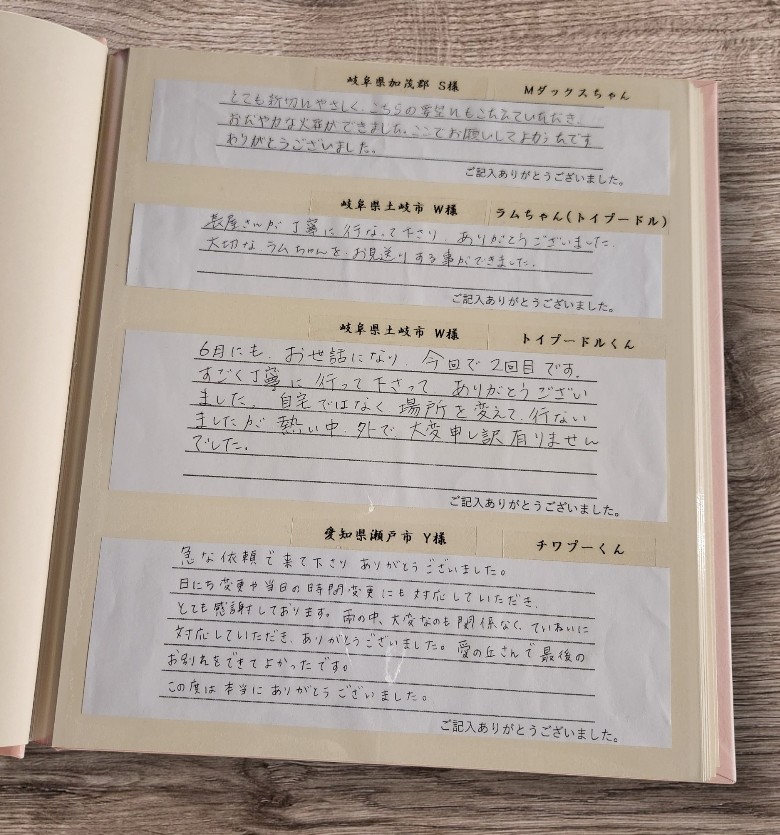 岐阜県加茂郡 S様 Mダックスちゃん
とても親切にやさしく、こちらの要望にもこたえていただき、
おだやかな火葬ができました。ここでお願いしてよかったです
ありがとうございました。
ご記入ありがとうございました。
岐阜県土岐市 W様 ラムちゃん(トイプードル)
長屋さんが丁寧に行なって下さり、ありがとうございました。
大切なラムちゃんを、お見送りする事ができました。
ご記入ありがとうございました。
岐阜県土岐市 W様 トイプードルくん
6月にも、お世話になり、今回で2回目です。
すごく丁寧に行って下さって、ありがとうござい
ました。自宅ではなく場所を変えて、行ない
ましたが熱い中、外で、大変申し訳有りません
でした。
ご記入ありがとうございました。
愛知県瀬戸市 Y様 チワプーくん
急な依頼で来て下さり ありがとうございました。
日にち変更や当日の時間変更にも対応していただき、
とても感謝しております。雨の中、大変なのも関係なく、ていねいに
対応していただき、ありがとうございました。愛の丘さんで最後の
お別れをできてよかったです。
この度は本当にありがとうございました。
ご記入ありがとうございました。